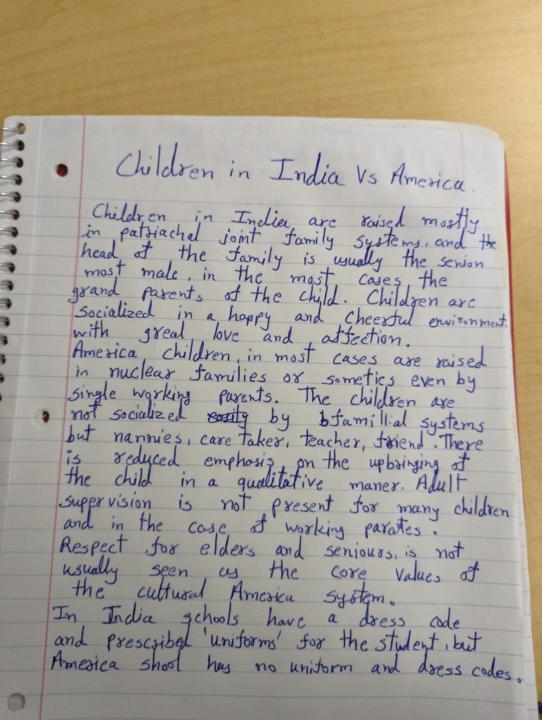 Children in India Vs America.
Children in India are raised mostly
in patriachel joint family systems, and the
head of the family is usually the senion
most male, in the most cases the
grand parents of the child. Children are
socialized in a happy and cheerful environment.
with great love and affection.
America children, in most cases are raised
in nuclear families or sometics even by
single working parents. The children are
not socialized by famillial systems
but nannies, care taker, teacher, friend. There
is reduced emphosis on the upbringing of
the child in a qualitative maner. Adult
supervision is not present for many children
and in the case of working parates.
Respect for elders and seniours, is not
usually seen as the core values of
the cultural America system.
In India schools have a dress code
and prescribel 'uniforms' for the student, but
America shool has no uniform and dress codes.